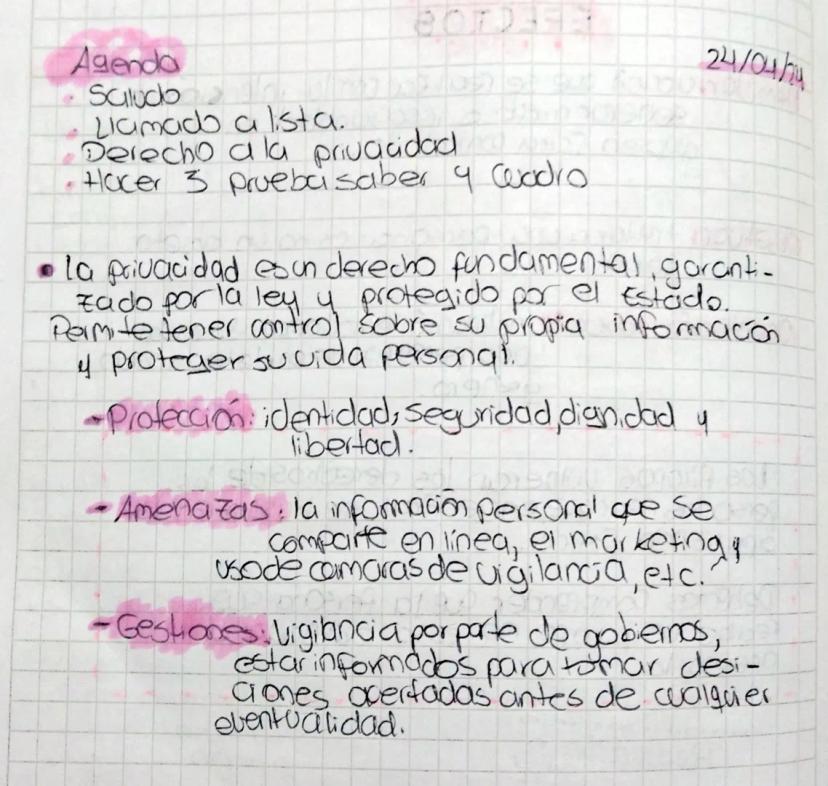 Agenda
24/04/24
• Saludo
• Llamado a lista.
• Derecho a la privacidad
• Hacer 3 prueba saber y cuadro
• la privacidad es un derecho fundamental, garanti-
zado por la ley y protegido por el Estado.
Permite tener control sobre su propia información
y proteger su vida personal.
- Protección: identidad, seguridad, dignidad y
libertad.
- Amenazas: la información personal que se
comparte en línea, el marketing y
uso de camaras de vigilancia, etc.
- Gestiones: Vigilancia por parte de gobiernos,
estar informados para tomar desi-
ciones acertadas antes de cualquier
eventualidad.